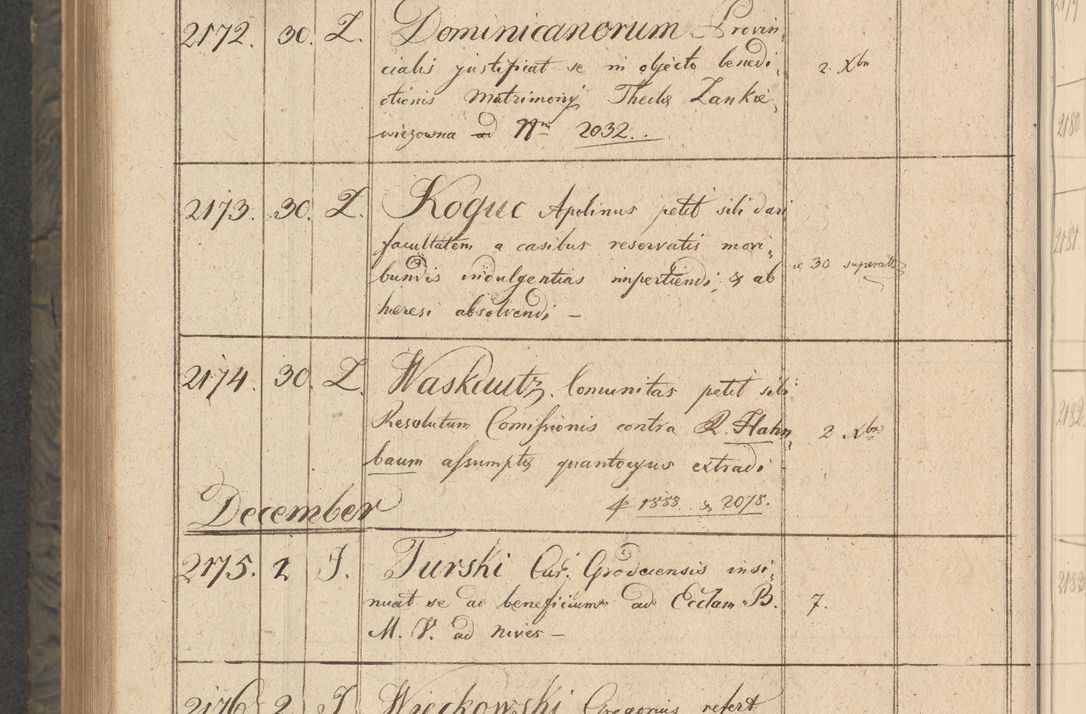 2172. 30. L. Dominicanorum Provin,
cialis justificat se in objecto benedi, 2. Xbr
ctionis Matrimonij Theclæ Zankie,
wiczowna ad Nrm 2032..
2173. 30. L. Koguc Apolinus petit sibi dari
facultatem a casibus reservatis mori,
bundis indulgentias impertiendi, & ab 30 superatt
hæresi absolvendi –
2174. 30. L. Waskautz Comunitas petit sibi
Resolutum Comissionis contra R. Hahn, 2. Xbr
baum assumptæ quantocyus extradi -
1858. & 2078.
December
2175. 1 J. Turski Cur. Grodecensis insi,
nuat se ad beneficium ad Ecclam B. 7.
M. V. ad nives –
2176. 2 J. Wieckowski Gregorius refert
2180
2181
2182
2183